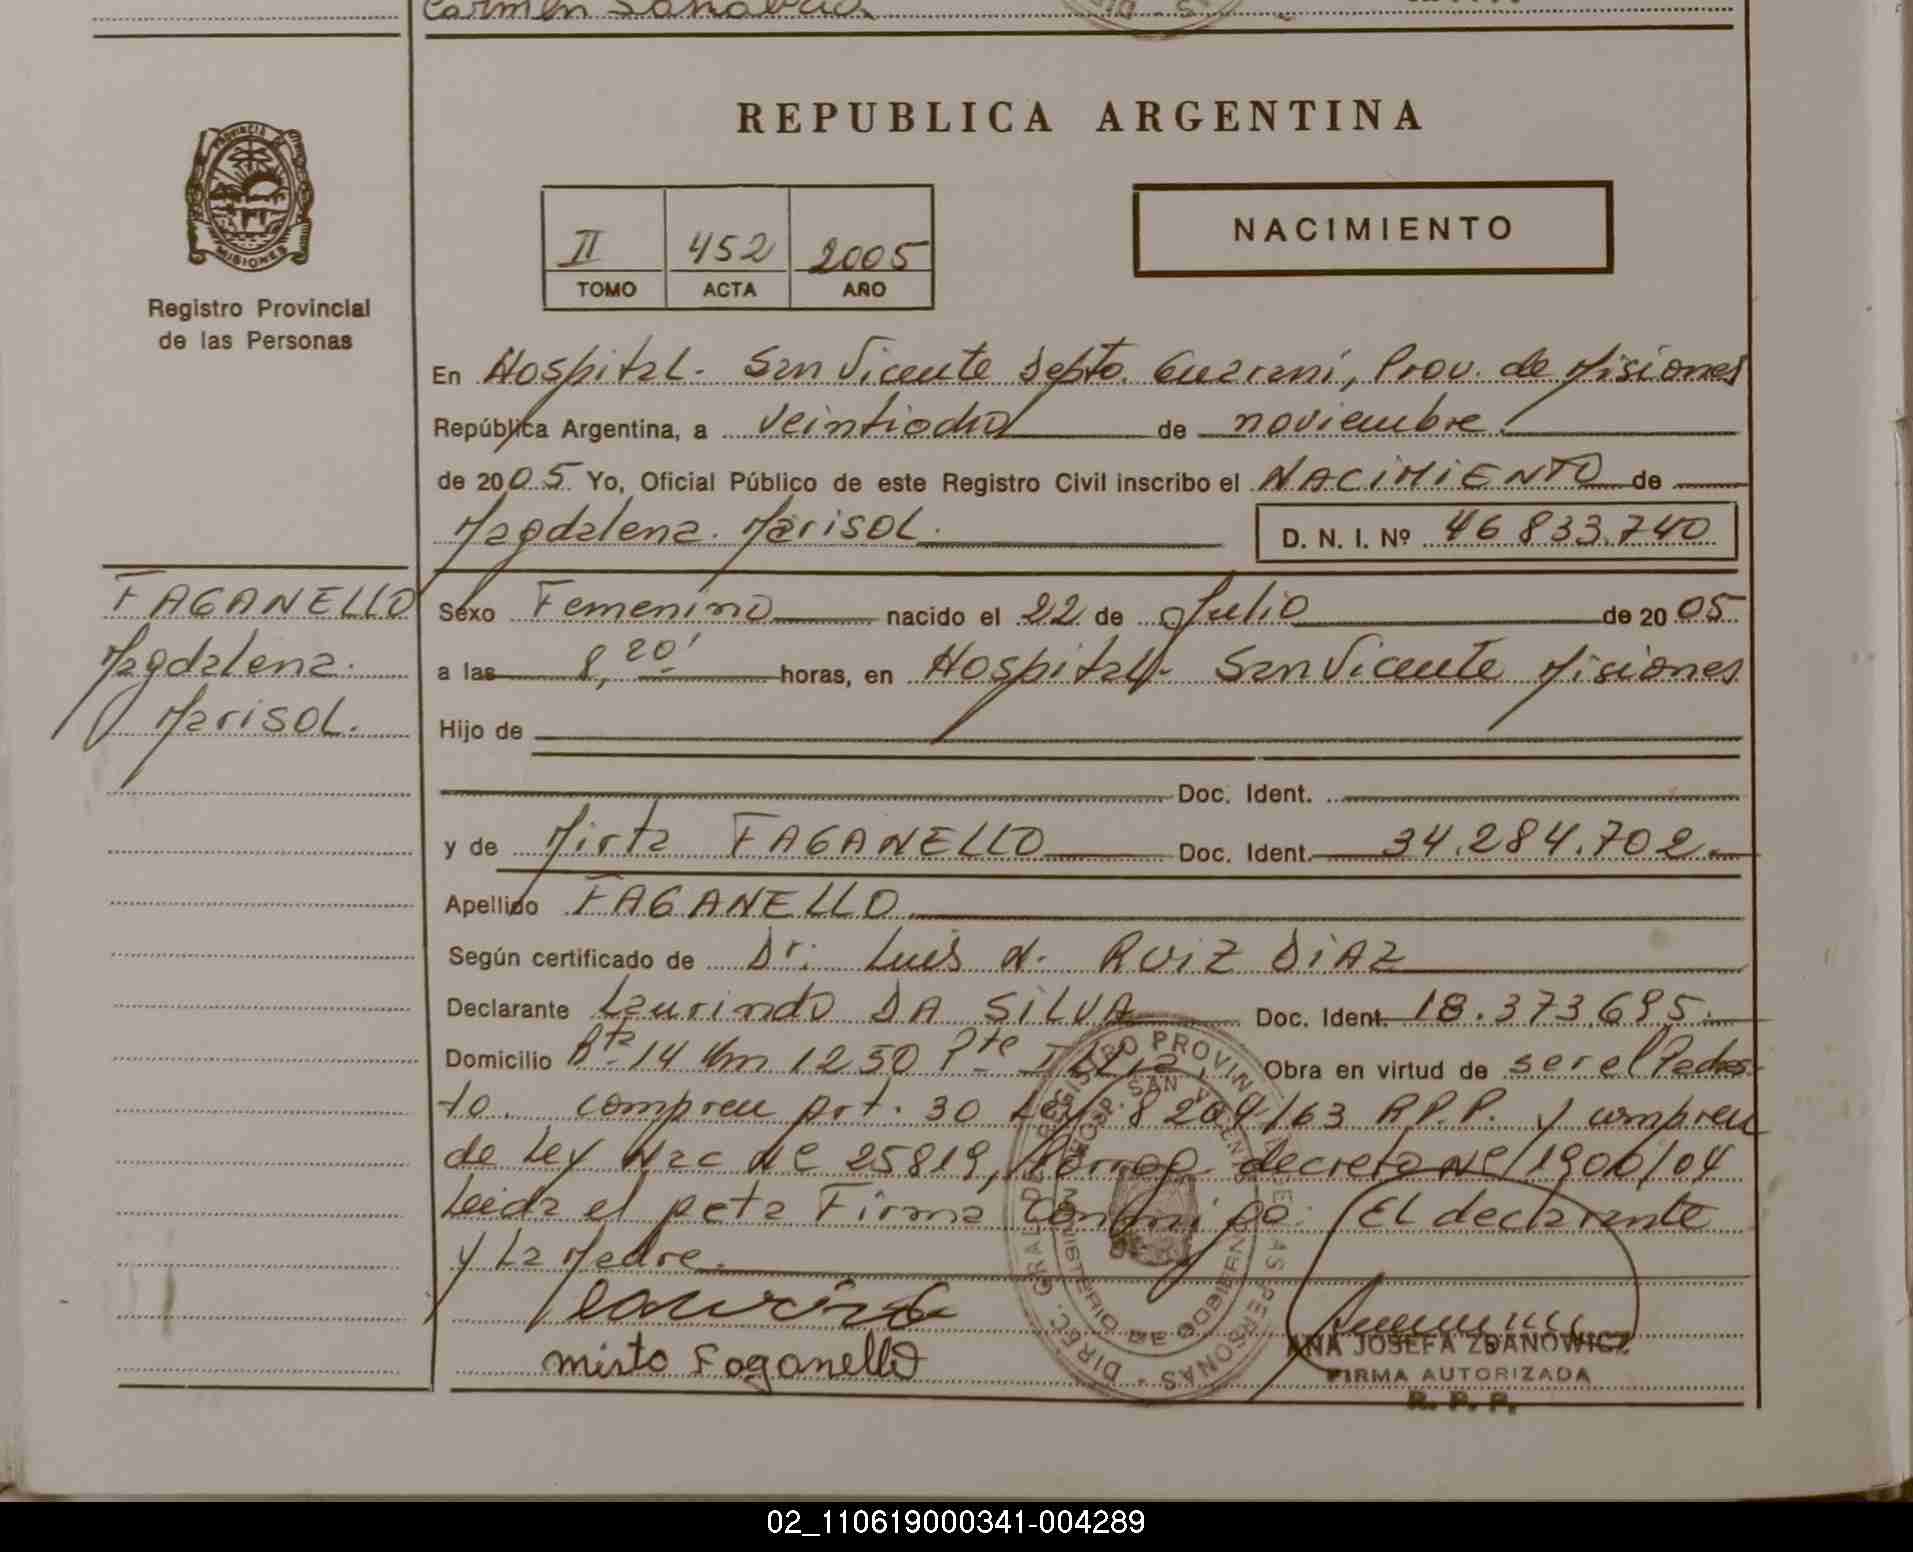 Carmen Sanabria
REPUBLICA ARGENTINA
PROVINCIA DE
MISIONES
Registro Provincial
de las Personas
II 452 2005
TOMO ACTA AÑO
NACIMIENTO
En Hospital. San Vicente Depto. Guarani, Prov. de Misiones
República Argentina, a veintiocho de noviembre.
de 2005 Yo, Oficial Público de este Registro Civil inscribo el NACIMIENTO de
Magdalena. Marisol.
D. N. I. Nº 46 833.740
FAGANELLO
Magdalena.
Marisol.
Sexo Femenino nacido el 22 de Julio de 2005
a las 8,20' horas, en Hospital. San Vicente Misiones
Hijo de
Doc. Ident.
y de Mirta FAGANELLO Doc. Ident. 34.284.702.
Apellido FAGANELLO
Según certificado de Dr. Luis N. RUIZ DIAZ
Declarante Laurindo DA SILVA Doc. Ident. 18.373.695.
Domicilio Rta 14 Km 1250 Pte Obra en virtud de ser el Padras
to. compren Art. 30 Ley 8204/63 R.P.P. y compren
de Ley Nac Nº 25819, Prorrog. decreto Nº 1900/04
Leida el Firma Conmigo: El declarante
y La Madre.
Mirta Faganello
ANA JOSEFA ZDANOWICZ
FIRMA AUTORIZADA
R. P. P.
02_110619000341-004289